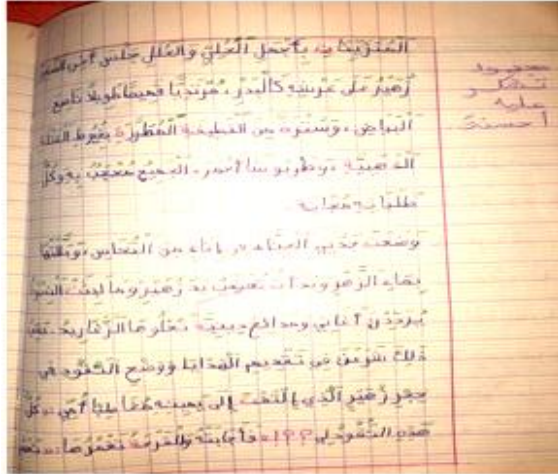 المتزينات بأجمل الحلي والحلل جلس أخي
زهير على عرشه كالبدر، مرتديا قميصا طويلا ناصع
البياض، وسترة من القطيفة المطرزة بخيوط
الذهبية، وطربوشا أحمر، الجميع معجب به وكل
طلباته مجابة
وضعت جدتي الحناء في إناء من النحاس
بماء الزهر وبدأت يد زهير وما لبثت النسوة
يرددن أغاني ومدائح دينية تتخللها الزغاريد،
ذلك شرعن في تقديم الهدايا ووضع النقود في
حجر زهير الذي إلتفت إلى يمينه مخاطبا أمي: أكل
هذه النقود لي ؟؟! فأجابته والفرحة تغمرها: نعم
مجهود
تشكر
عليه
أحسنت